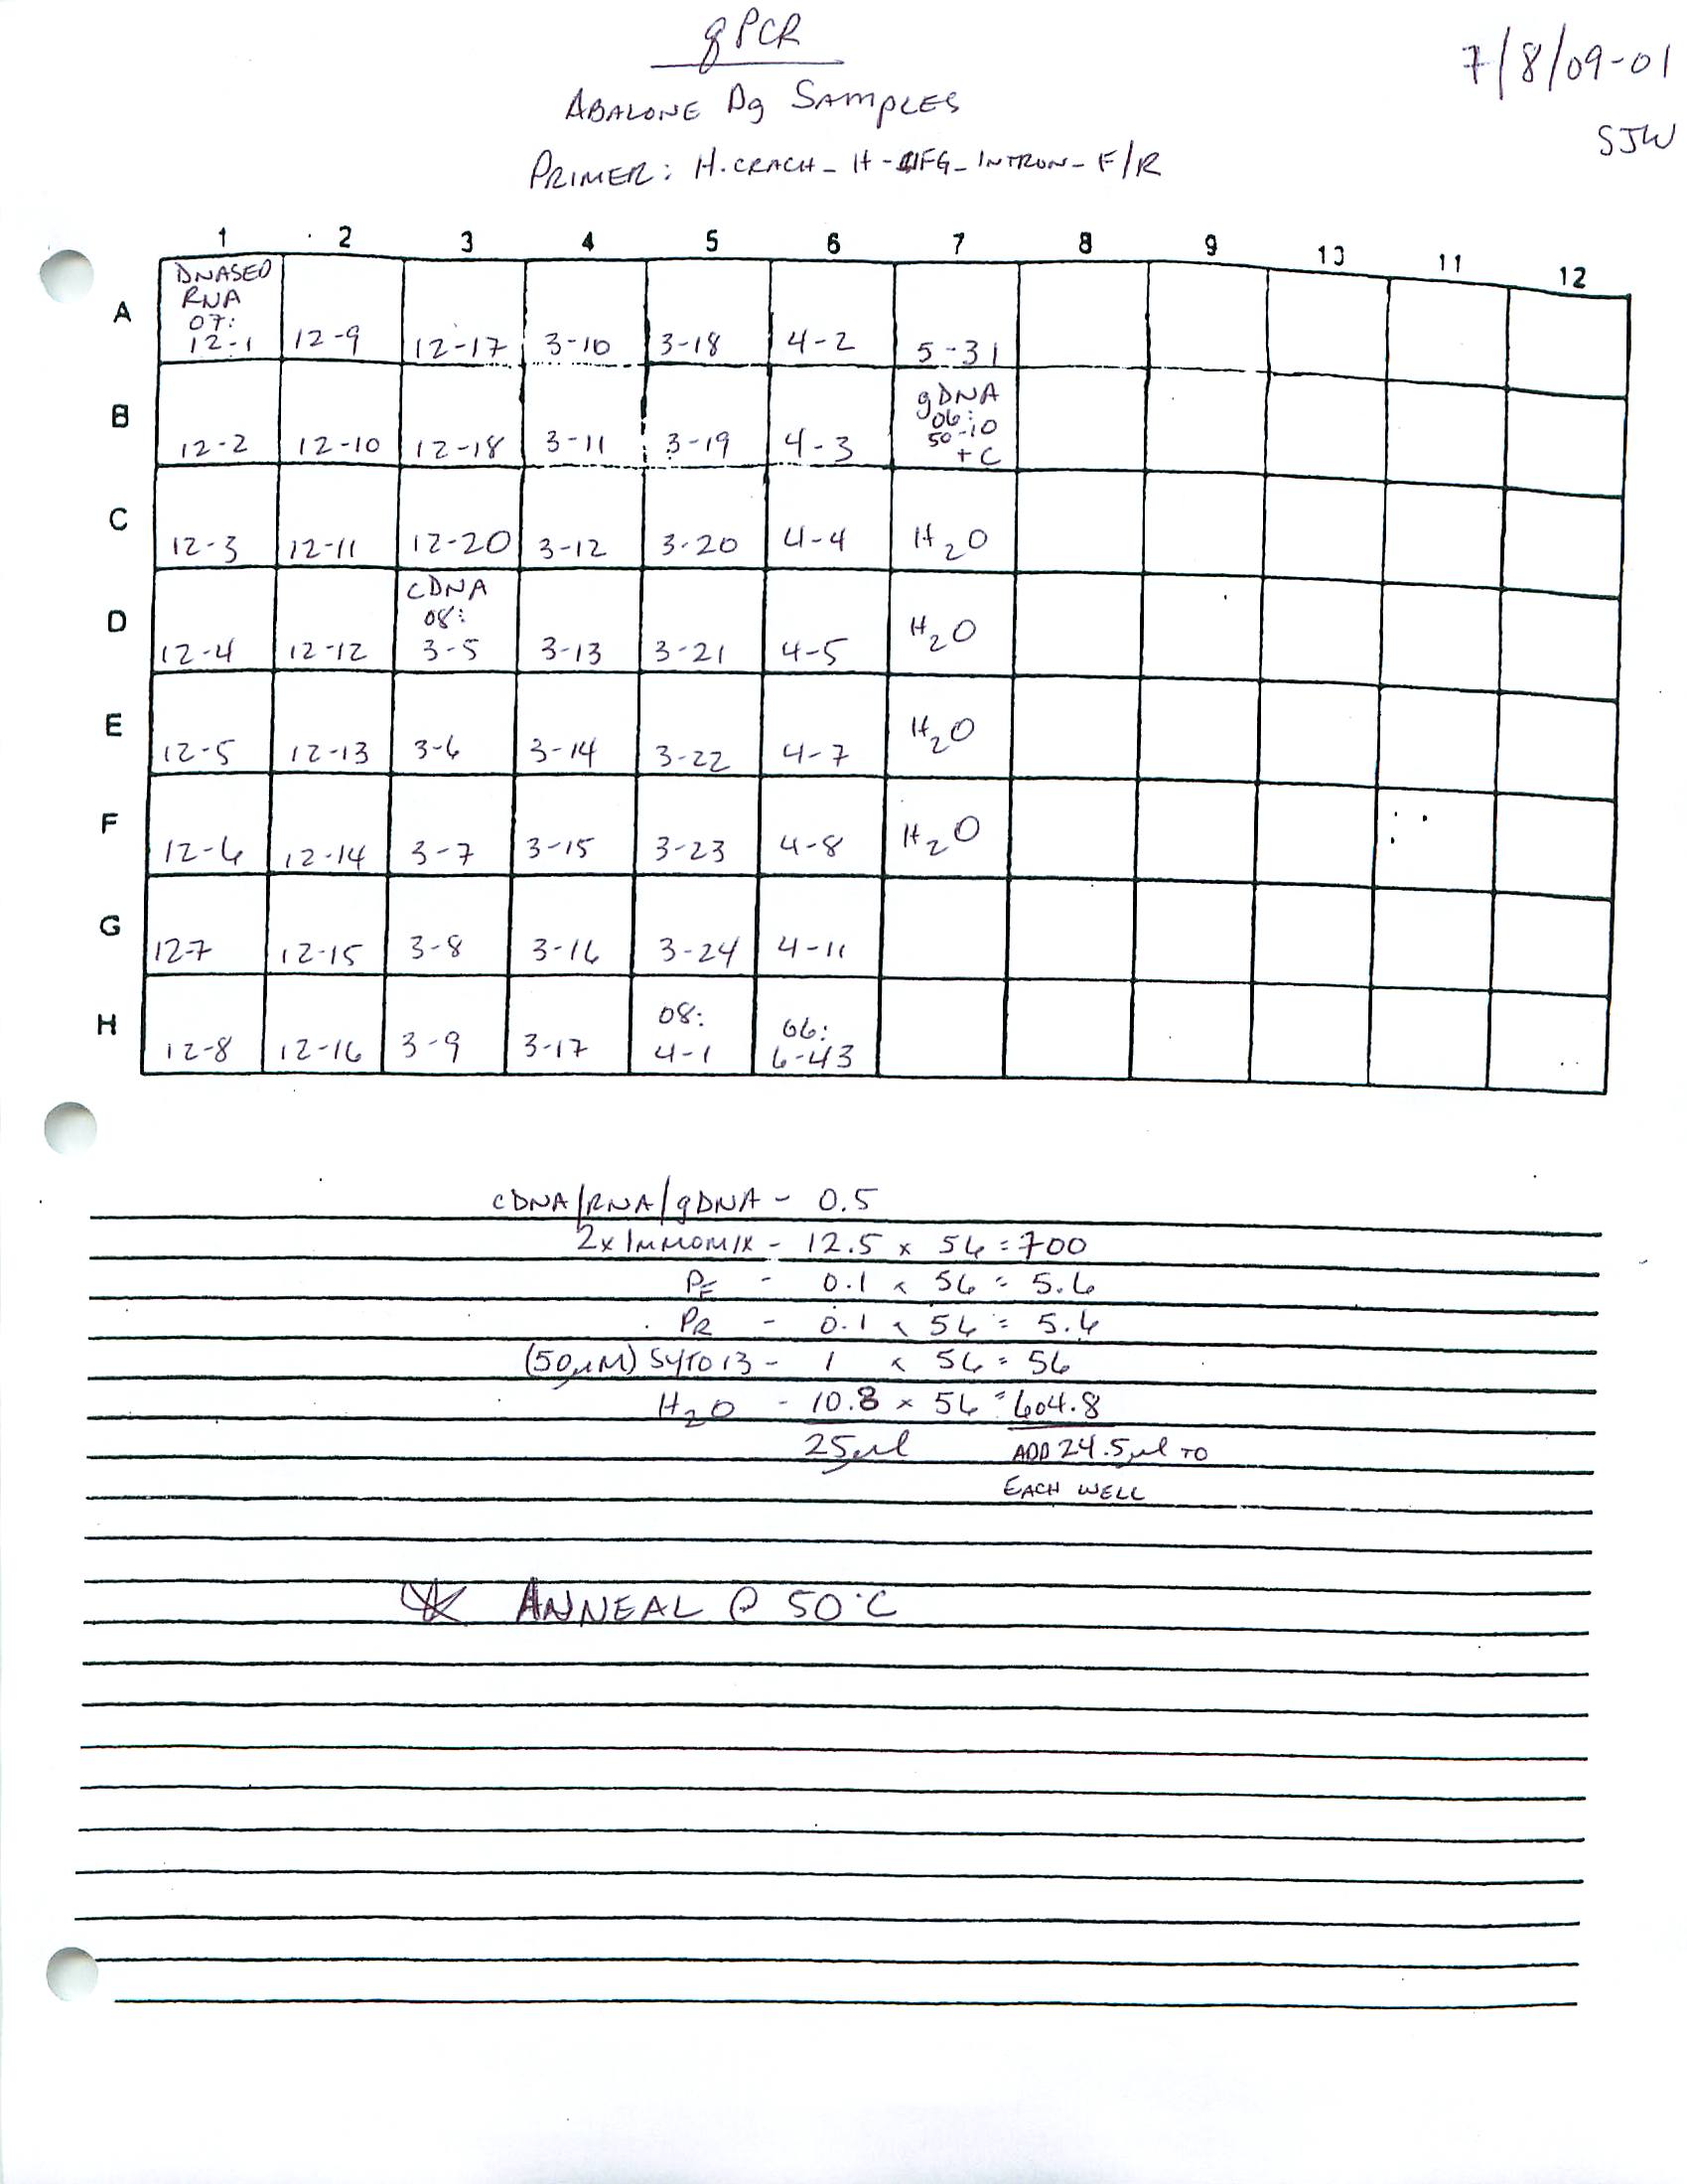 qPCR
7/8/09-01
ABALONE Dg SAMPLES
SJW
PRIMER: H.CRACH_H-IFG_INTRON_F/R
1 2 3 4 5 6 7 8 9 10 11 12
DNASED
RNA
07:
A 12-1 12-9 12-17 3-10 3-18 4-2 5-31
gDNA
06:
50-10
B 12-2 12-10 12-18 3-11 3-19 4-3 +C
C 12-3 12-11 12-20 3-12 3-20 4-4 H2O
cDNA
08:
D 12-4 12-12 3-5 3-13 3-21 4-5 H2O
E 12-5 12-13 3-6 3-14 3-22 4-7 H2O
F 12-6 12-14 3-7 3-15 3-23 4-8 H2O
G 12-7 12-15 3-8 3-16 3-24 4-11
08: 06:
H 12-8 12-16 3-9 3-17 4-1 6-43
cDNA/RNA/gDNA - 0.5
2x IMMOMIX - 12.5 x 56 = 700
PF - 0.1 x 56 = 5.6
PR - 0.1 x 56 = 5.6
(50µM) SYTO 13 - 1 x 56 = 56
H2O - 10.8 x 56 = 604.8
25µl ADD 24.5µl TO
EACH WELL
ANNEAL @ 50°C